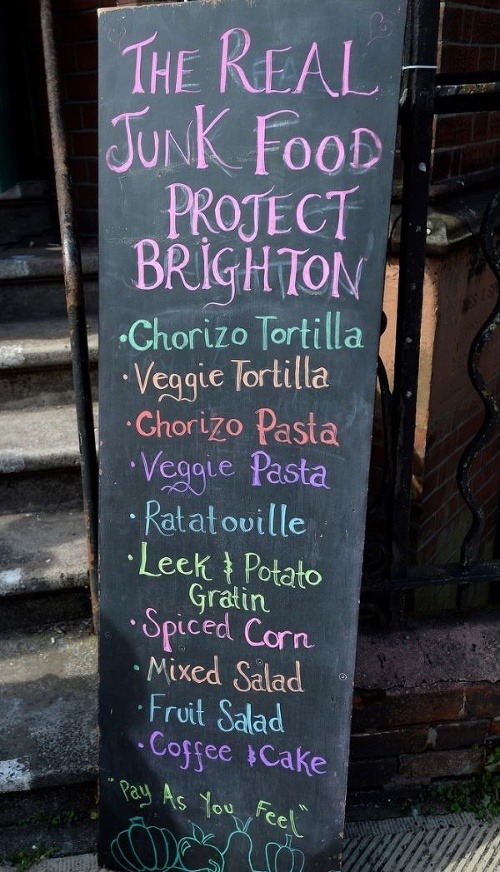 THE REAL
JUNK FOOD
PROJECT
BRIGHTON
·Chorizo Tortilla
·Veggie Tortilla
·Chorizo Pasta
·Veggie Pasta
·Ratatouille
·Leek & Potato
Gratin
·Spiced Corn
·Mixed Salad
·Fruit Salad
·Coffee & Cake
"Pay As You Feel"